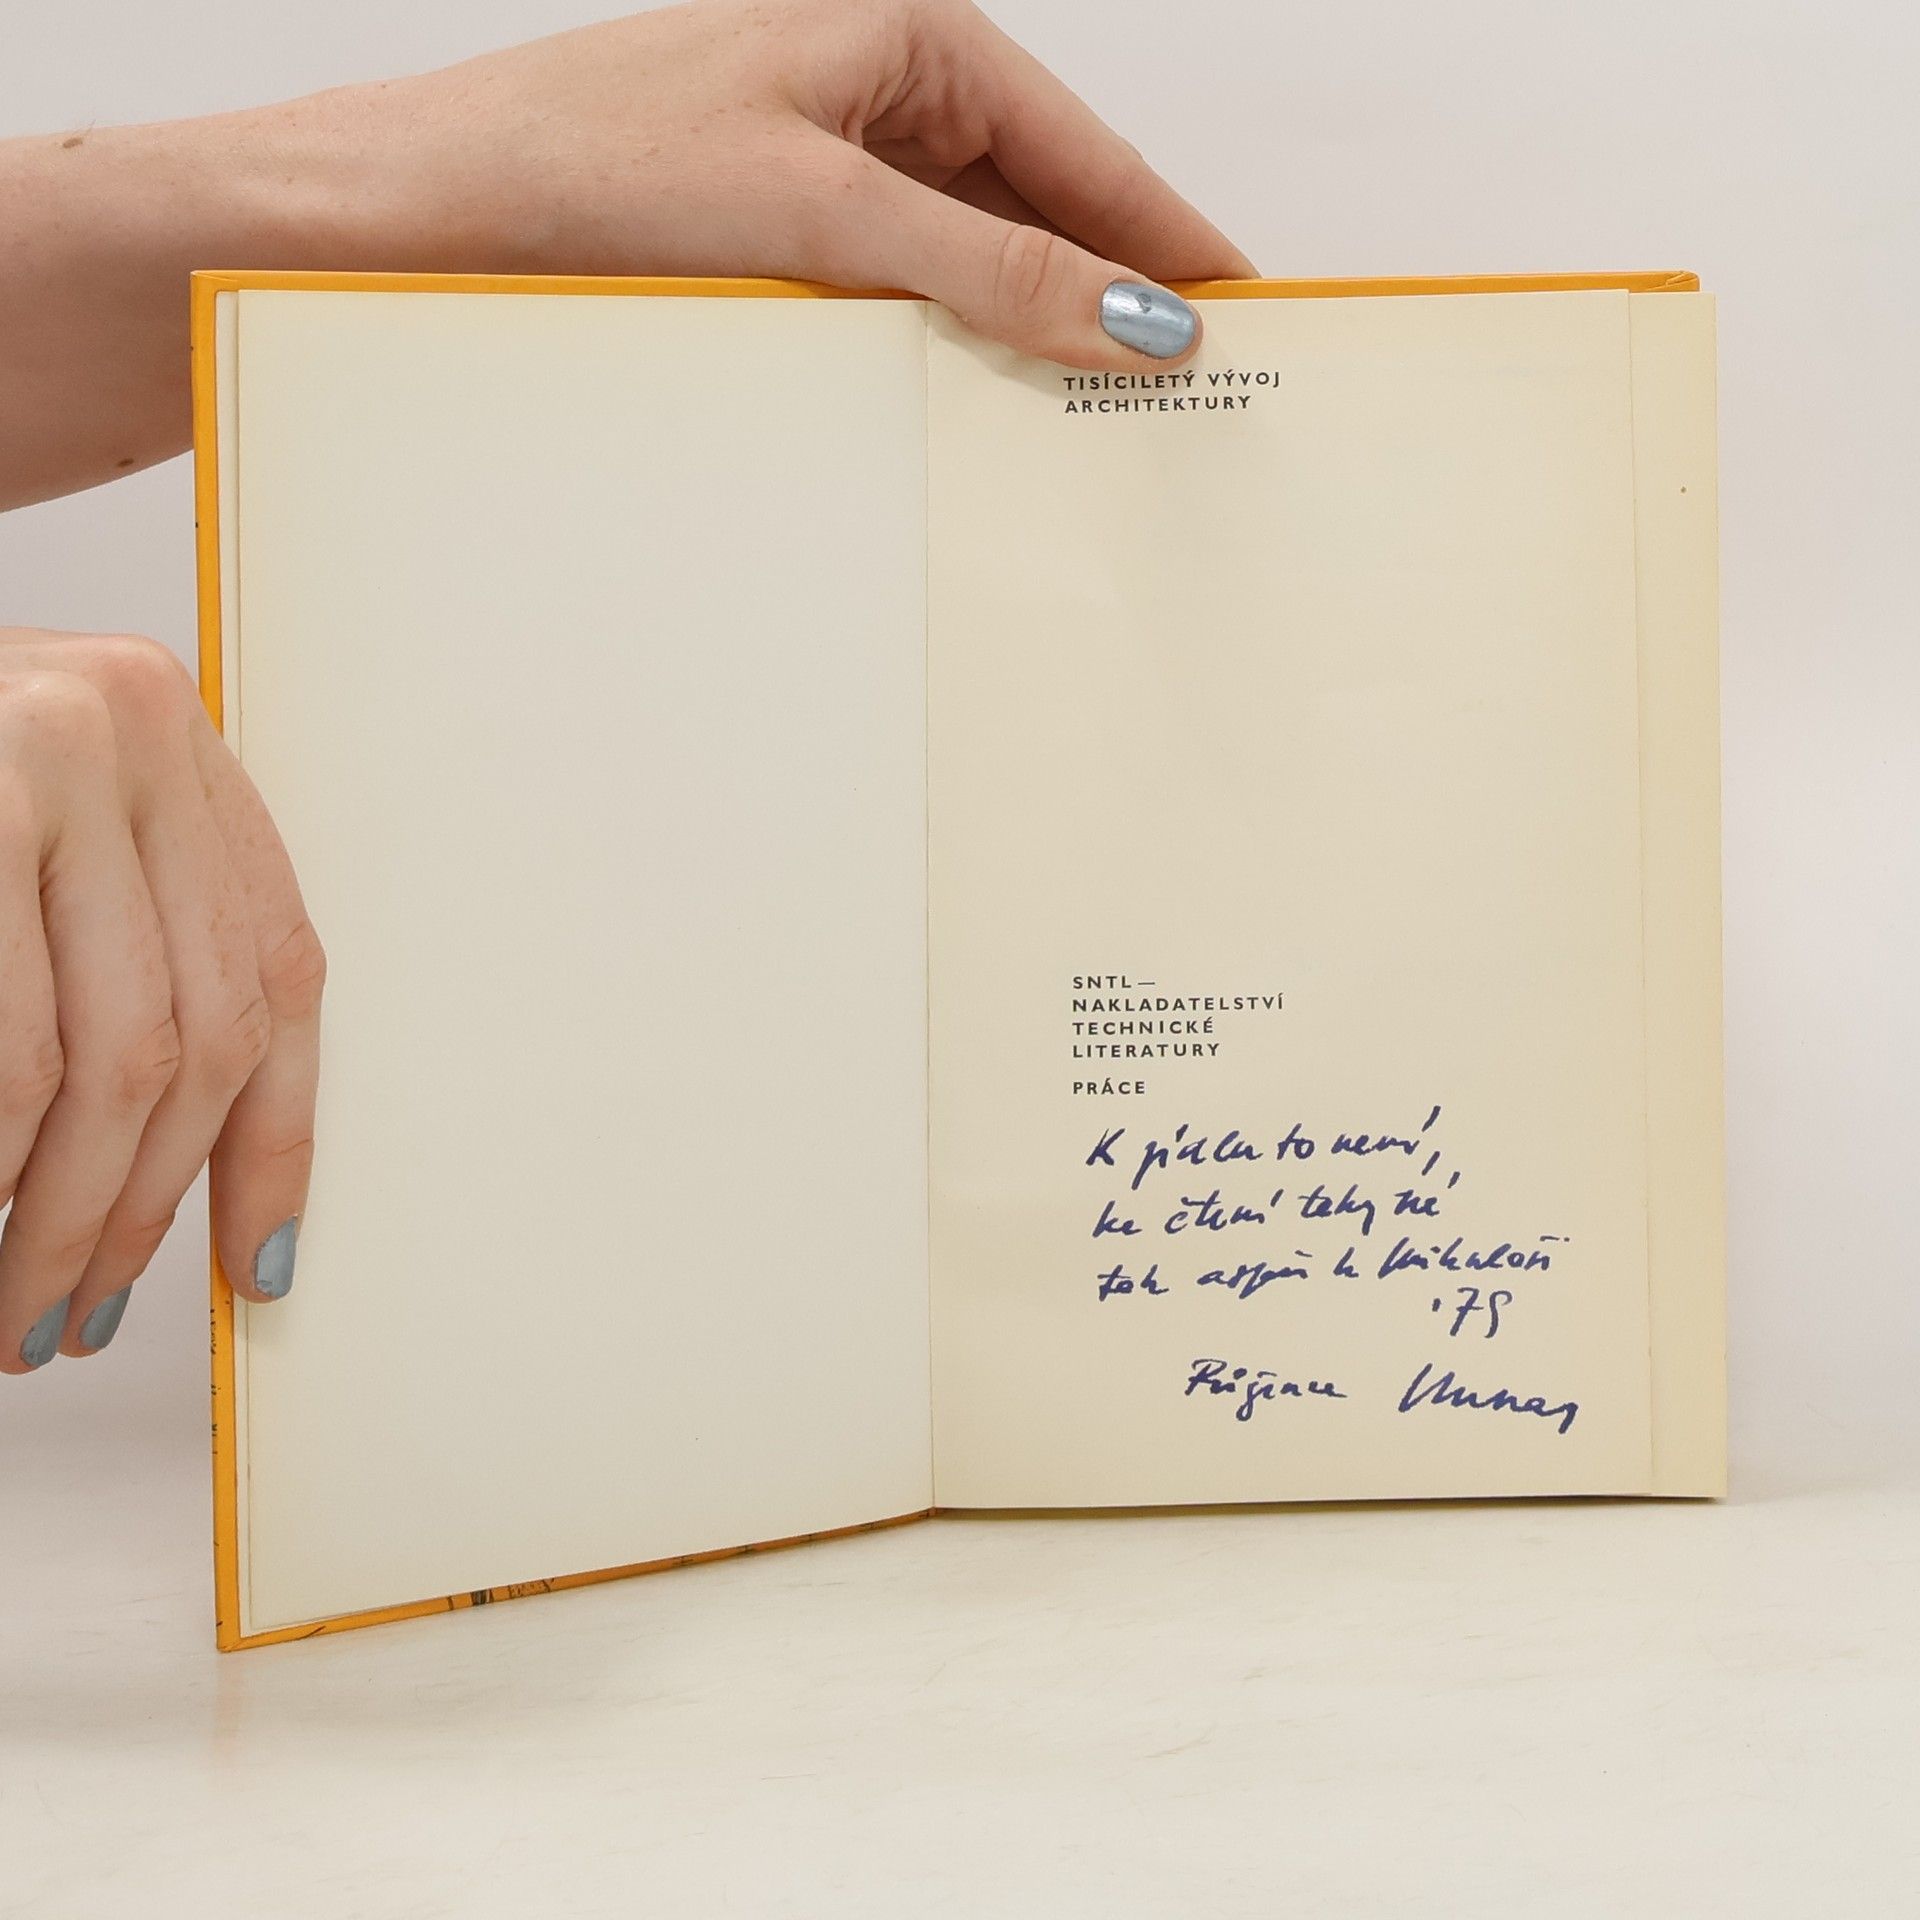 TISÍCILETÝ VÝVOJ
ARCHITEKTURY
SNTL —
NAKLADATELSTVÍ
TECHNICKÉ
LITERATURY
PRÁCE
K jídlu to není,
ke čtení taky né
tak aspoň k Mikuláši
'79